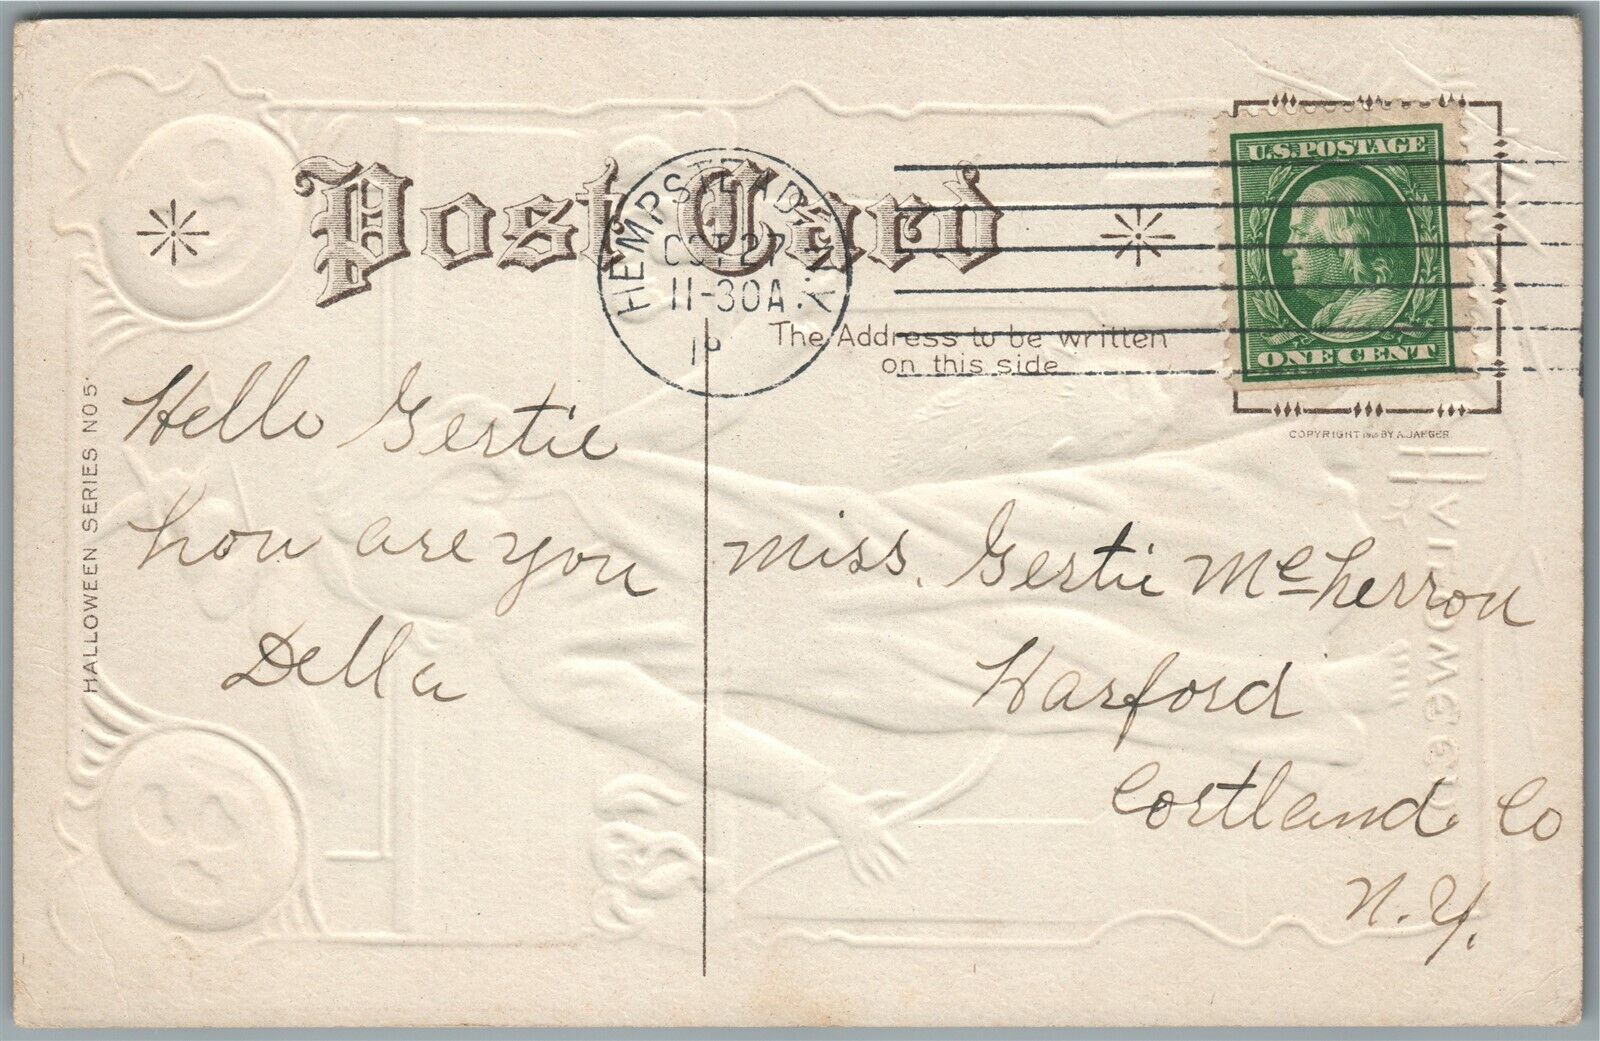 Post Card
HEMPSTEAD, N.Y.
OCT 27
11-30A.
19
The Address to be written
on this side
U.S.POSTAGE
ONE CENT
COPYRIGHT 1910 BY A.JAEGER
HALLOWEEN SERIES NO 5.
Hello Gertie
how are you
Della
Miss. Gertie McPherron
Harford
Cortland Co
N.Y.